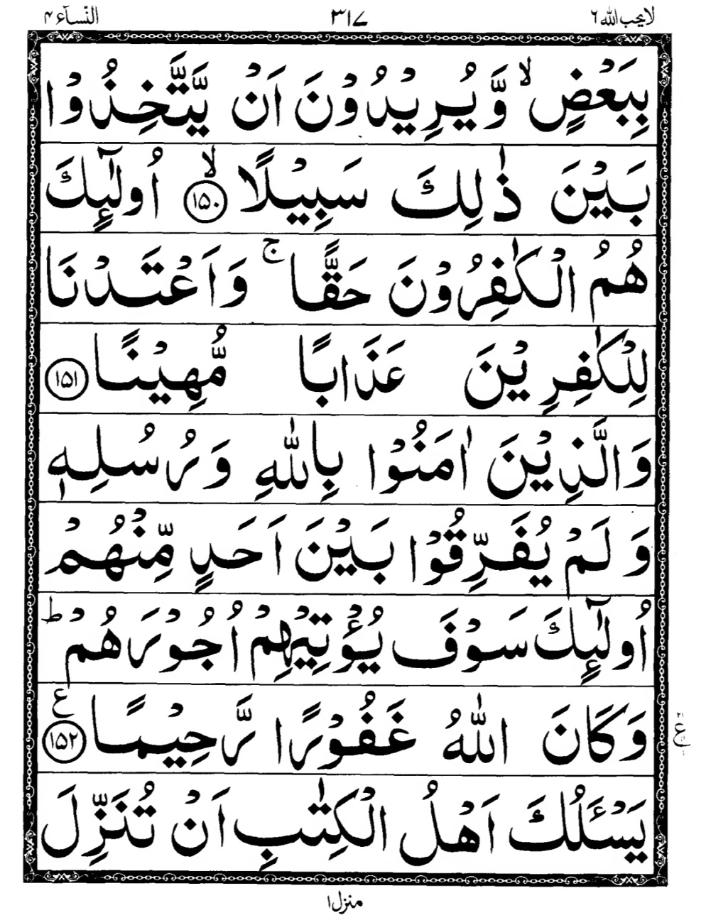 لایحب الله ۶ ۳۱۷ النسآء ۴
بِبَعْضٍ ۙ وَّيُرِيْدُوْنَ اَنْ يَّتَّخِذُوْا
بَيْنَ ذٰلِكَ سَبِيْلًا ۙ ﴿۱۵۰﴾ اُولٰٓئِكَ
هُمُ الْكٰفِرُوْنَ حَقًّا ۚ وَاَعْتَدْنَا
لِلْكٰفِرِيْنَ عَذَابًا مُّهِيْنًا ﴿۱۵۱﴾
وَالَّذِيْنَ اٰمَنُوْا بِاللّٰهِ وَرُسُلِهٖ
وَلَمْ يُفَرِّقُوْا بَيْنَ اَحَدٍ مِّنْهُمْ
اُولٰٓئِكَ سَوْفَ يُؤْتِيْهِمْ اُجُوْرَهُمْ ؕ
وَكَانَ اللّٰهُ غَفُوْرًا رَّحِيْمًا ﴿۱۵۲﴾ ع
يَسْـَٔلُكَ اَهْلُ الْكِتٰبِ اَنْ تُنَزِّلَ
منزل ۱